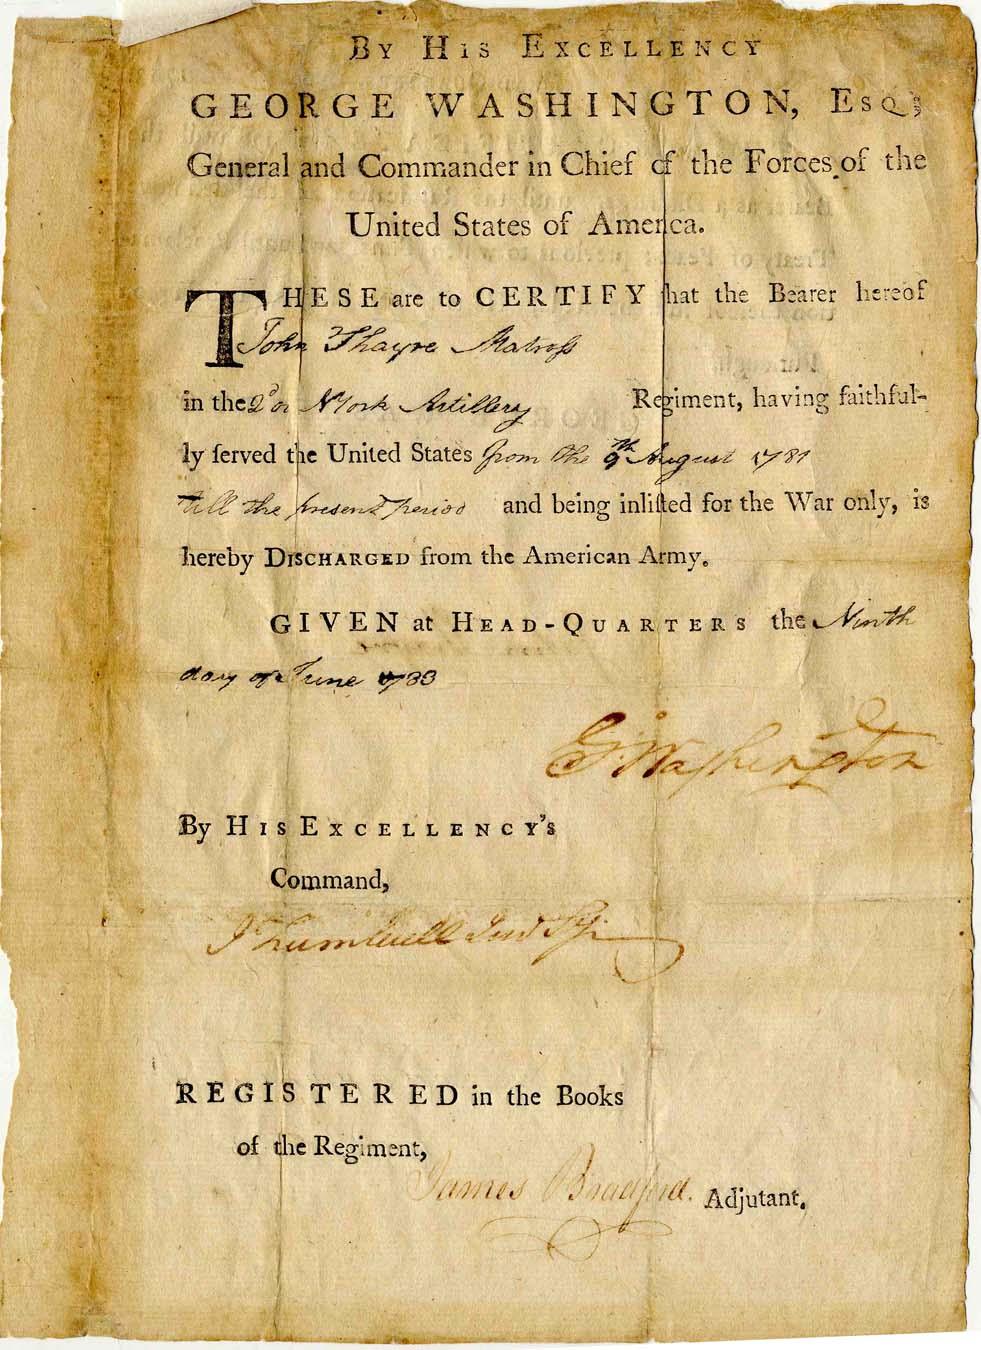 By His Excellency
GEORGE WASHINGTON, Esq;
General and Commander in Chief of the Forces of the
United States of America.
THESE are to CERTIFY that the Bearer hereof
John Thayre Matross
in the 2d or N York Artillery Regiment, having faithful-
ly served the United States from the 9th August 1781
till the present period and being inlisted for the War only, is
hereby Discharged from the American Army.
GIVEN at Head-Quarters the Ninth
day of June 1783
G Washington
By His Excellency's
Command,
J Trumbull Jun Sy
REGISTERED in the Books
of the Regiment,
James Bradford. Adjutant.